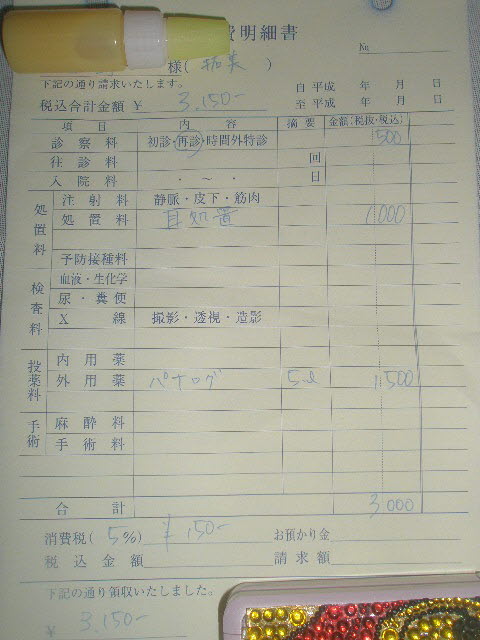 費明細書
No.
様( 拓美 )
下記の通り請求いたします。
自 平成 年 月 日
税込合計金額 ¥ 3,150-
至 平成 年 月 日
項目 内容 摘要 金額(税抜・税込)
診察料 初診・再診・時間外特診 500
往診料 回
入院料 ・ ~ ・ 日
処置料
注射料 静脈・皮下・筋肉
処置料 耳処置 1,000
予防接種料
検査料
血液・生化学
尿・糞便
X線 撮影・透視・造影
投薬料
内用薬
外用薬 パナログ 1,500
手術
麻酔料
手術料
合計 3,000
消費税( 5%) ¥150-
お預かり金
税込金額
請求額
下記の通り領収いたしました。
¥ 3,150-